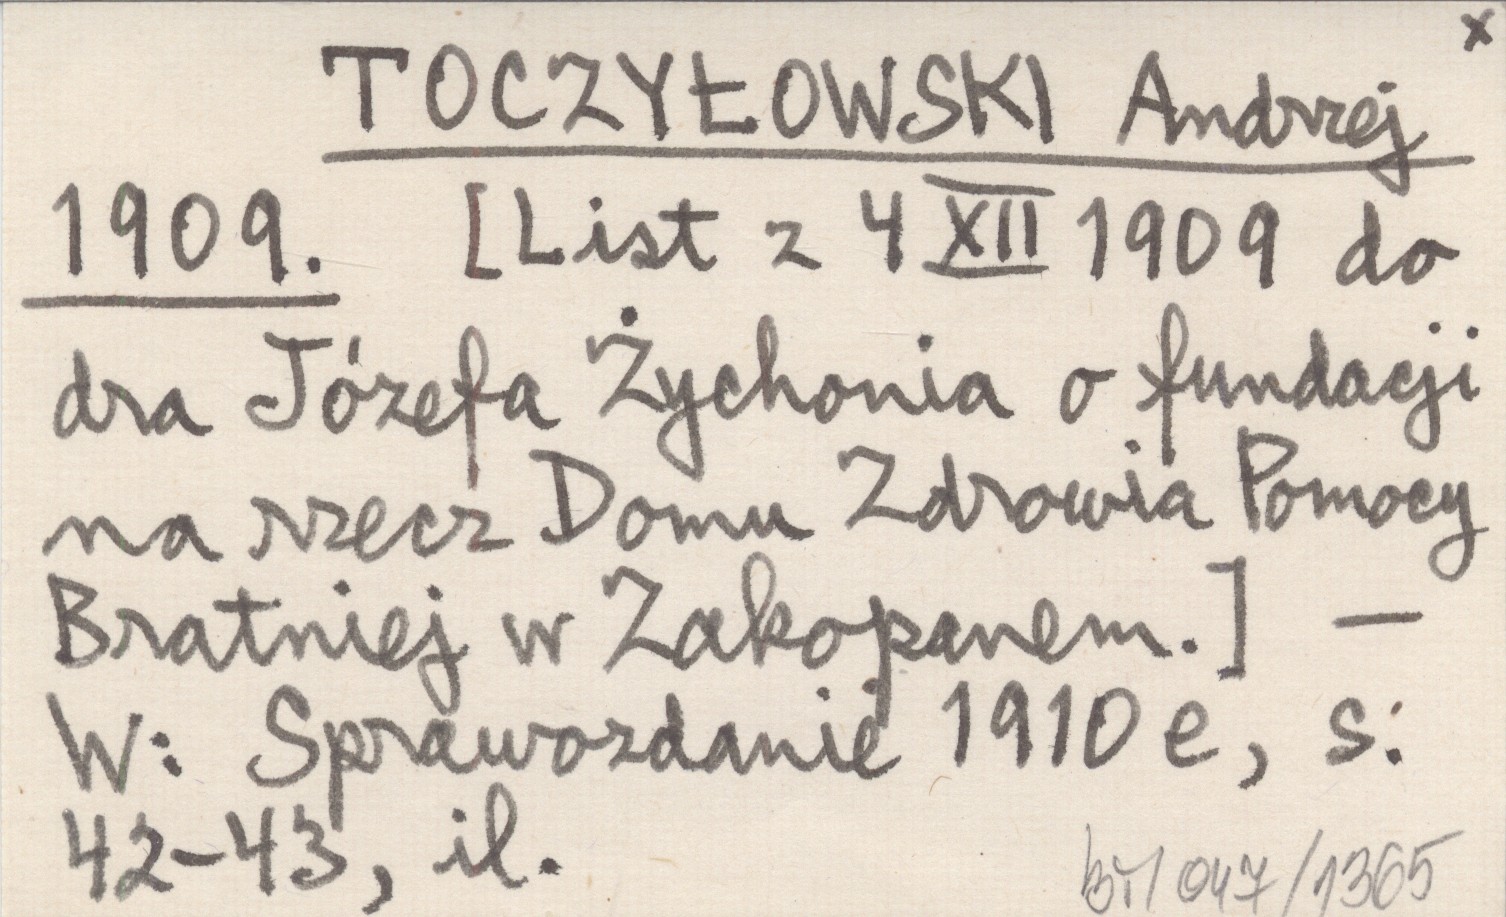 x
TOCZYŁOWSKI Andrzej
1909. [List z 4 XII 1909 do
dra Józefa Żychonia o fundacji
na rzecz Domu Zdrowia Pomocy
Bratniej w Zakopanem.] —
W: Sprawozdanie 1910 e, s:
42-43, il.
047/1365